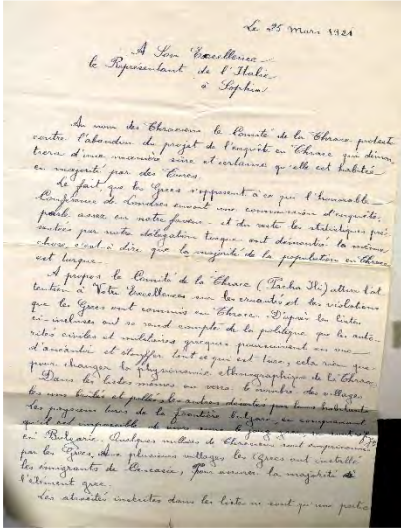 Le 25 Mars 1921
A Son Excellence
le Représentant de l'Italie
à Sophia
Au nom des Thraciens le Comité de la Thrace proteste
contre l'abandon du projet de l'enquête en Thrace qui démon
trera d'une manière sûre et certaine qu'elle est habitée
en majorité par des Turcs.
Le fait, que les Grecs s'opposent à ce que l'honorable
Conférence de Londres envoit une commission d'enquête,
parle assez en notre faveur et du reste les statistiques pré
sentées par notre délégation turque ont démontré la même
chose, c'est à dire que la majorité de la population en Thrace
est turque.
A propos le Comité de la Thrace (Pacha Ili) attire l'at
tention à Votre Excellence sur les cruautés et les violations
que les Grecs ont commis en Thrace. D'après les listes
ci-incluses on se rend compte de la politique que les auto
rités civiles et militaires grecques poursuivent en vue
d'anéantir et étouffer tout ce qui est turc, cela rien que
pour changer la physionomie ethnographique de la Thrace.
Dans les listes mêmes on verra le nombre des villages
les uns brûlés et pillés les autres désertés par leurs habitants.
Les paysans turcs de la frontière bulgare, en comprenant
qu'il est impossible de
en Bulgarie. Quelques milliers de Thraciens sont emprisonnés
par les Grecs. Aux plusieurs villages les Grecs ont installé
les émigrants de Caucasie, pour assurer la majorité à
l'élément grec.
Les atrocités inscrites dans les listes ne sont qu'une partie